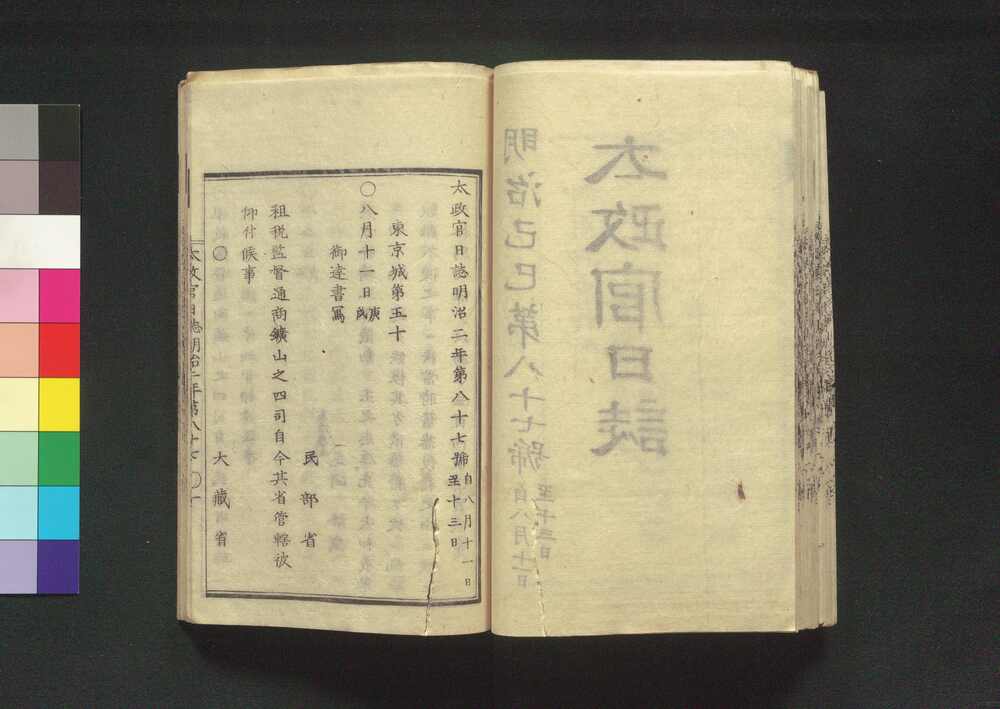 太政官日誌
明治己巳第八十七號
自八月十一日
至十三日
太政官日誌明治二年第八十七號
自八月十一日
至十三日
東京城第五十
〇八月十一日庚戌
御達書寫
民部省
租税監督通商鑛山之四司自今其省管轄被
仰付候事
〇大藏省
太政官日誌明治二年第八十七〇一